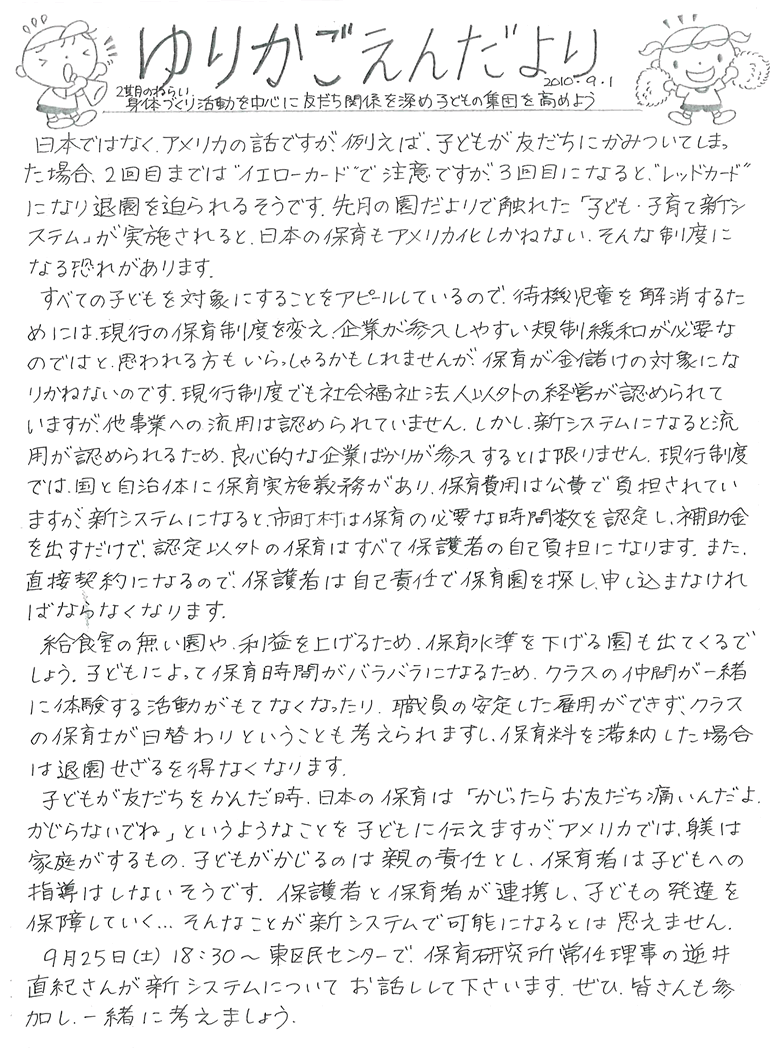 ゆりかごえんだより
2010.9.1
2期のねらい
身体づくり活動を中心に友だち関係を深め子どもの集団を高めよう
日本ではなく、アメリカの話ですが、例えば、子どもが友だちにかみついてしまっ
た場合、2回目までは"イエローカード"で注意ですが、3回目になると、"レッドカード"
になり退園を迫られるそうです。先月の園だよりで触れた「子ども・子育て新シ
ステム」が実施されると、日本の保育もアメリカ化しかねない、そんな制度に
なる恐れがあります。
すべての子どもを対象にすることをアピールしているので、待機児童を解消するた
めには、現行の保育制度を変え、企業が参入しやすい規制緩和が必要な
のではと、思われる方もいらっしゃるかもしれませんが、保育が金儲けの対象にな
りかねないのです。現行制度でも社会福祉法人以外の経営が認められて
いますが、他事業への流用は認められていません。しかし、新システムになると流
用が認められるため、良心的な企業ばかりが参入するとは限りません。現行制度
では、国と自治体に保育実施義務があり、保育費用は公費で負担されてい
ますが、新システムになると、市町村は保育の必要な時間数を認定し、補助金
を出すだけで、認定以外の保育はすべて保護者の自己負担になります。また、
直接契約になるので、保護者は自己責任で保育園を探し、申し込まなけれ
ばならなくなります。
給食室の無い園や、利益を上げるため、保育水準を下げる園も出てくるで
しょう。子どもによって保育時間がバラバラになるため、クラスの仲間が一緒
に体験する活動がもてなくなったり、職員の安定した雇用ができず、クラス
の保育士が日替わりということも考えられますし、保育料を滞納した場合
は退園せざるを得なくなります。
子どもが友だちをかんだ時、日本の保育は「かじったらお友だち痛いんだよ。
かじらないでね」というようなことを子どもに伝えますが、アメリカでは、躾は
家庭がするもの、子どもがかじるのは親の責任とし、保育者は子どもへの
指導はしないそうです。保護者と保育者が連携し、子どもの発達を
保障していく…そんなことが新システムで可能になるとは思えません。
9月25日(土)18:30~東区民センターで、保育研究所常任理事の逆井
直紀さんが新システムについてお話しして下さいます。ぜひ、皆さんも参
加し、一緒に考えましょう。